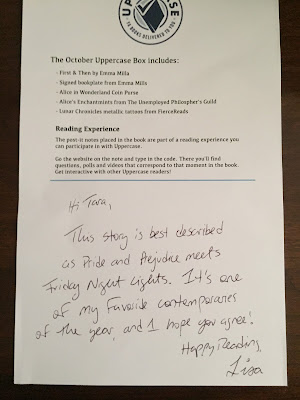 UPPERCASE
YA BOOKS DELIVERED TO YOU
The October Uppercase Box includes:
- First & Then by Emma Mills
- Signed bookplate from Emma Mills
- Alice in Wonderland Coin Purse
- Alice's Enchantments from The Unemployed Philospher's Guild
- Lunar Chronicles metallic tattoos from FierceReads
Reading Experience
The post-it notes placed in the book are part of a reading experience you
can participate in with Uppercase.
Go the website on the note and type in the code. There you'll find
questions, polls and videos that correspond to that moment in the book.
Get interactive with other Uppercase readers!
Hi Tara,
This story is best described
as Pride and Prejudice meets
Friday Night Lights. It's one
of my favorite contemporaries
of the year, and I hope you agree!
Happy Reading,
Lisa